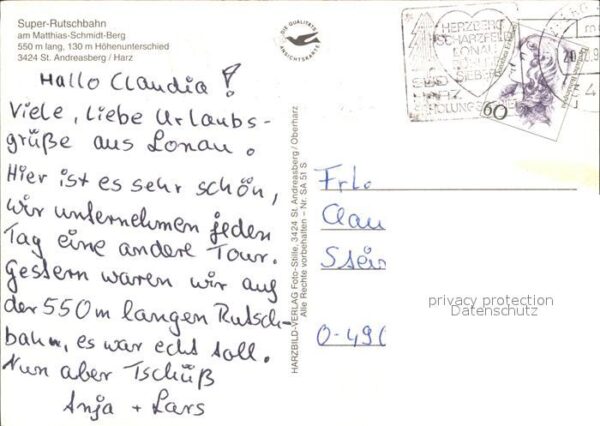 Super-Rutschbahn
am Matthias-Schmidt-Berg
550 m lang, 130 m Höhenunterschied
3424 St. Andreasberg / Harz
DIE QUALITÄTS
ANSICHTSKARTE
HERZBERG
SCHARZFELD
LONAU
SIEBER
SÜD
HARZ
ERHOLUNGS
60
Hallo Claudia!
Viele, liebe Urlaubs-
grüße aus Lonau.
Hier ist es sehr schön,
wir unternehmen jeden
Tag eine andere Tour.
Gestern waren wir auf
der 550m langen Rutsch-
bahn, es war echt toll.
Nun aber Tschüß
Anja + Lars
HARZBILD-VERLAG Foto-Stille, 3424 St. Andreasberg / Oberharz
Alle Rechte vorbehalten – Nr. SA 51 S
Frl.
Clau
Stei
O-49
privacy protection
Datenschutz